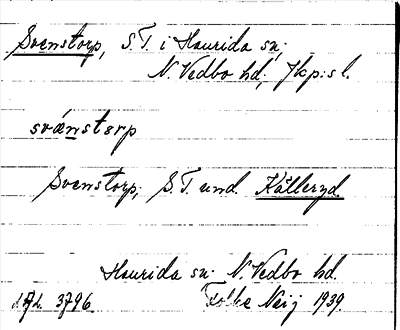 Svenstorp, S.T. i Haurida sn;
N. Vedbo hd; Jkp:s l.
svänstərp
Svenstorp; S.T. und. Källeryd.
Haurida sn. N. Vedbo hd.
3796. Folke Neij 1939.